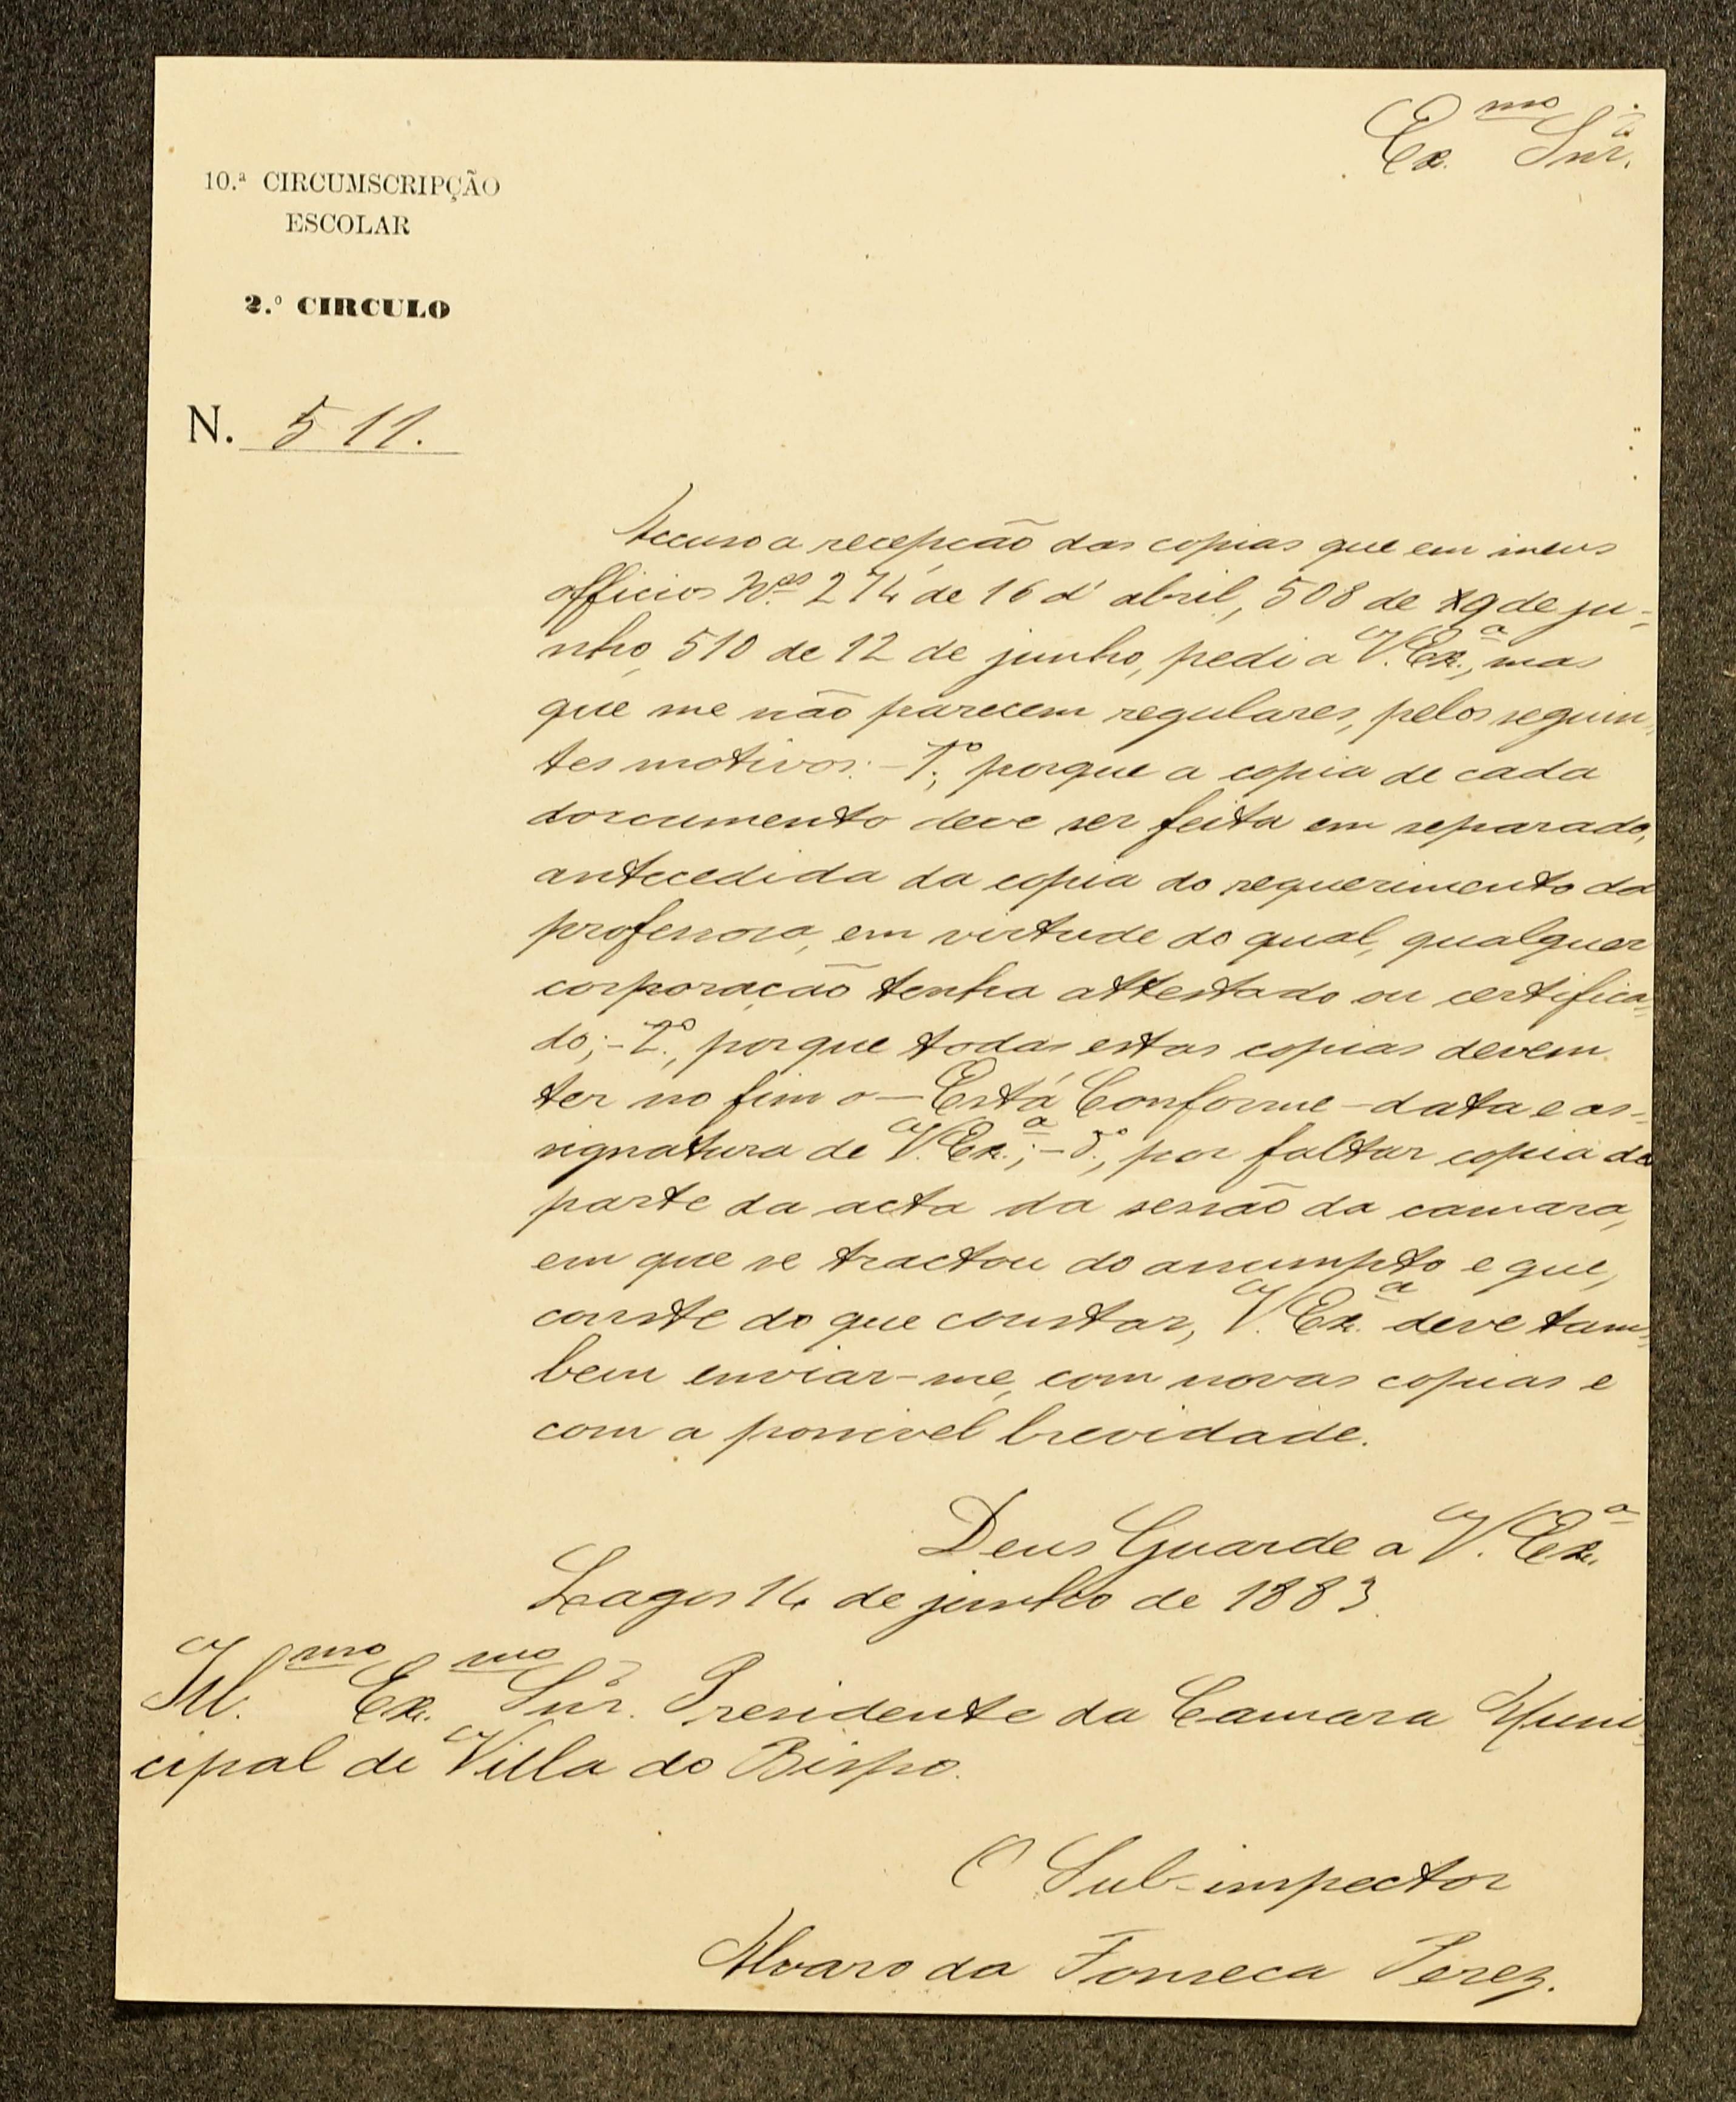 Ex.mo Snr.
10.ª CIRCUMSCRIPÇÃO
ESCOLAR
2.º CIRCULO
N. 511.
Accuso a recepção das copias que em meus
officios N.os 274 de 16 d'abril, 508 de 9 de ju-
nho, 510 de 12 de junho, pedi a V. Ex.ª, mas
que me não parecem regulares, pelos seguin-
tes motivos: - 1.º, porque a copia de cada
documento deve ser feita em separado,
antecedida da copia do requerimento da
professora, em virtude do qual, qualquer
corporação tenha attestado ou certifica-
do; - 2.º, porque todas estas copias devem
ter no fim o — Está Conforme - data e as-
signatura de V. Ex.ª; - 3.º, por faltar copia da
parte da acta da sessão da camara,
em que se tractou do assumpto e que,
conste do que constar, V. Ex.ª deve tam-
bem enviar-me, com novas copias e
com a possivel brevidade.
Deus Guarde a V. Ex.ª
Lagos 14 de junho de 1883.
Ill.mo Ex.mo Snr. Presidente da Camara Muni-
cipal de Villa do Bispo.
O Sub-inspector
Alvaro da Fonseca Perez.